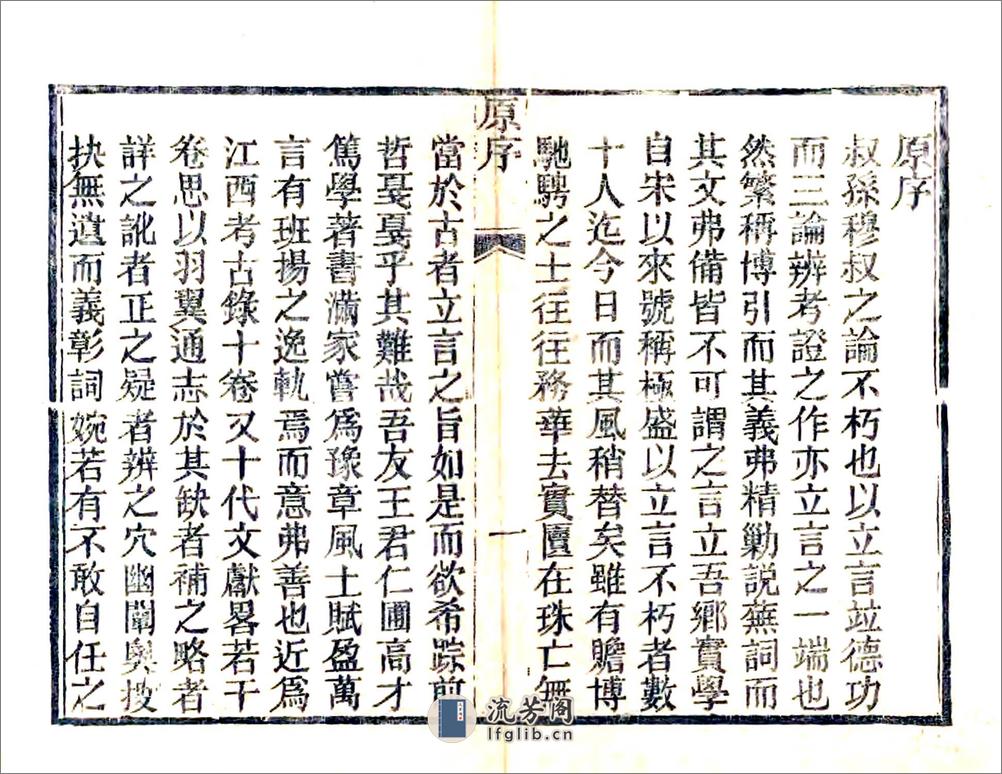 原序
叔孫穆叔之論不朽也以立言竝德功
而三論辨考證之作亦立言之一端也
然繁稱博引而其義弗精勦説蕪詞而
其文弗備皆不可謂之言立吾鄉實學
自宋以來號稱極盛以立言不朽者數
十人迄今日而其風稍替矣雖有贍博
馳騁之士往往務華去實匵在珠亡無
原序
一
當於古者立言之旨如是而欲希踪前
哲戞戞乎其難哉吾友王君仁圃高才
篤學著書滿家嘗爲豫章風土賦盈萬
言有班揚之逸軌焉而意弗善也近爲
江西考古錄十卷又十代文獻畧若干
卷思以羽翼通志於其缺者補之略者
詳之訛者正之疑者辨之穴幽闡奥捜
抉無遺而義彰詞婉若有不敢自任之
流芳阁
lfglib.cn